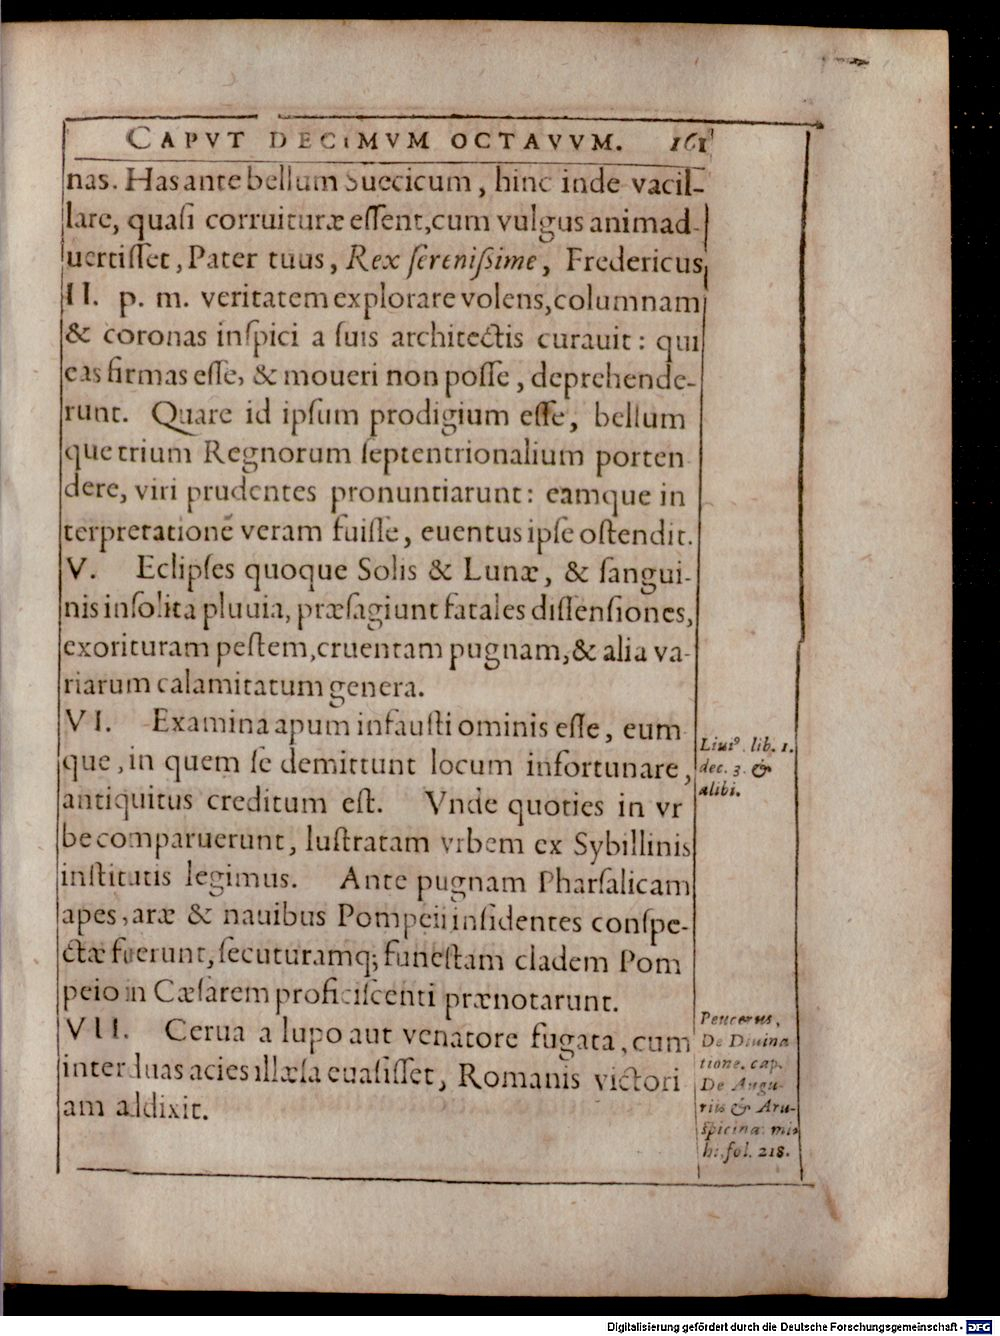 CAPVT DECIMVM OCTAVVM. 161
nas. Has ante bellum Suecicum, hinc inde vacil-
lare, quasi corruituræ essent, cum vulgus animad-
uertisset, Pater tuus, Rex serenissime, Fredericus
II. p. m. veritatem explorare volens, columnam
& coronas inspici a suis architectis curauit: qui
eas firmas esse, & moueri non posse, deprehende-
runt. Quare id ipsum prodigium esse, bellum
que trium Regnorum septentrionalium porten
dere, viri prudentes pronuntiarunt: eamque in
terpretationē veram fuisse, euentus ipse ostendit.
V. Eclipses quoque Solis & Lunæ, & sangui-
nis insolita pluuia, præsagiunt fatales dissensiones,
exorituram pestem, cruentam pugnam, & alia va-
riarum calamitatum genera.
VI. Examina apum infausti ominis esse, eum
que, in quem se demittunt locum infortunare,
antiquitus creditum est. Vnde quoties in vr
be comparuerunt, lustratam vrbem ex Sybillinis
institutis legimus. Ante pugnam Pharsalicam
apes, aræ & nauibus Pompeii insidentes conspe-
ctæ fuerunt, secuturamq; funestam cladem Pom
peio in Cæsarem proficiscenti prænotarunt.
VII. Cerua a lupo aut venatore fugata, cum
inter duas acies illæsa euasisset, Romanis victori
am addixit.
Liuiꝰ. lib. 1.
dec. 3. &
alibi.
Peucerus,
De Diuina
tione. cap.
De Augu-
riis & Aru-
spicina. mi-
hi. fol. 218.
Digitalisierung gefördert durch die Deutsche Forschungsgemeinschaft - DFG